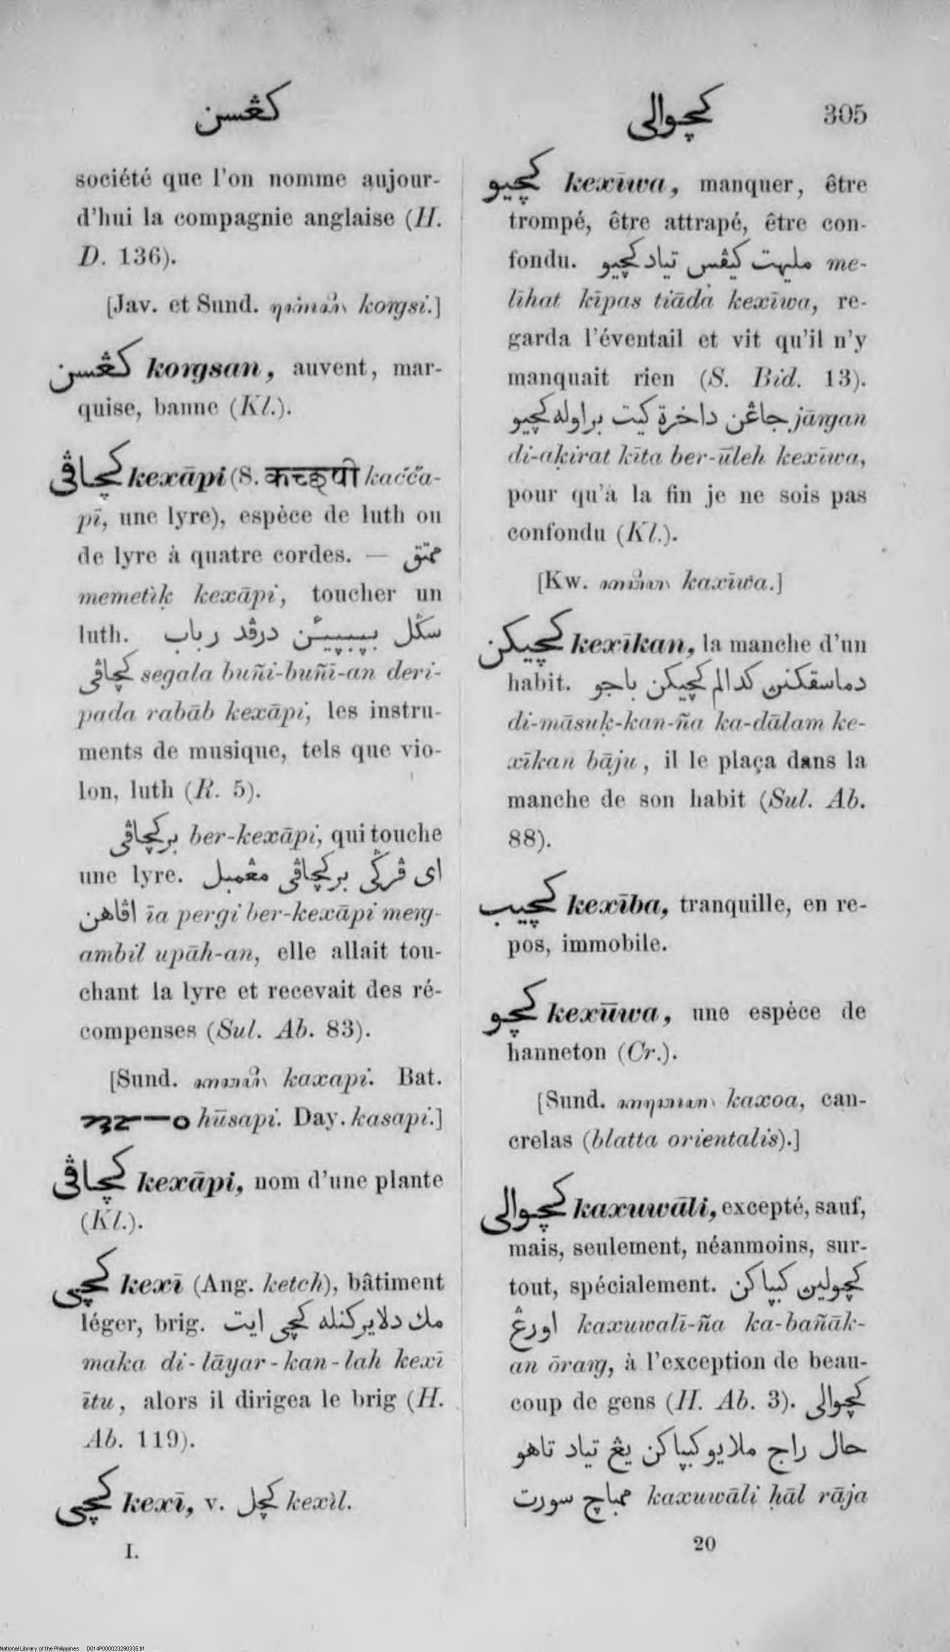 كڠسن
كچوالي
305
société que l'on nomme aujour-
d'hui la compagnie anglaise (H.
D. 136).
[Jav. et Sund. korgsi.]
كڠسن korgsan, auvent, mar-
quise, banne (Kl.).
كچاڤي kexāpi (S. कच्छपी kaččʻa-
pī, une lyre), espèce de luth ou
de lyre à quatre cordes. —
memetik̩ kexāpi, toucher un
luth. سكل درڤد رباب
كچاڤي segala buñi-buñi-an deri-
pada rabāb kexāpi, les instru-
ments de musique, tels que vio-
lon, luth (R. 5).
برکچاڤي ber-kexāpi, qui touche
une lyre. اي ڤرگي برکچاڤي مڠمبل
اڤاهن īa pergi ber-kexāpi merg-
ambil upāh-an, elle allait tou-
chant la lyre et recevait des ré-
compenses (Sul. Ab. 83).
[Sund. kaxapi. Bat.
hūsapi. Day. kasapi.]
كچاڤي kexāpi, nom d'une plante
(Kl.).
كچي kexī (Ang. ketch), bâtiment
léger, brig. مك دلايركنله كچي ايت
maka di-lāyar-kan-lah kexī
ītu, alors il dirigea le brig (H.
Ab. 119).
كچي kexī, v. كچل kexil.
I.
كچيو kexīwa, manquer, être
trompé, être attrapé, être con-
fondu. مليهت كيڤس تياد كچيو me-
līhat kīpas tiāda kexīwa, re-
garda l'éventail et vit qu'il n'y
manquait rien (S. Bid. 13).
جاڠن داخرة كيت براوله كچيو jārgan
di-ak̩irat kīta ber-ūleh kexīwa,
pour qu'à la fin je ne sois pas
confondu (Kl.).
[Kw. kaxīwa.]
كچيكن kexīkan, la manche d'un
habit. دماسقكنن كدالم كچيكن باجو
di-māsuk̩-kan-ña ka-dālam ke-
xīkan bāju, il le plaça dans la
manche de son habit (Sul. Ab.
88).
كچيب kexība, tranquille, en re-
pos, immobile.
كچو kexūwa, une espèce de
hanneton (Cr.).
[Sund. kaxoa, can-
crelas (blatta orientalis).]
كچوالي kaxuwāli, excepté, sauf,
mais, seulement, néanmoins, sur-
tout, spécialement. كچولين كبپاكن
اورڠ kaxuwalī-ña ka-bañāk-
an ōrarg, à l'exception de beau-
coup de gens (H. Ab. 3). كچوالي
حال راج ملايو كبپاكن يڠ تياد تاهو
ممباچ سورت kaxuwāli h̩āl rāja
20
National Library of the Philippines